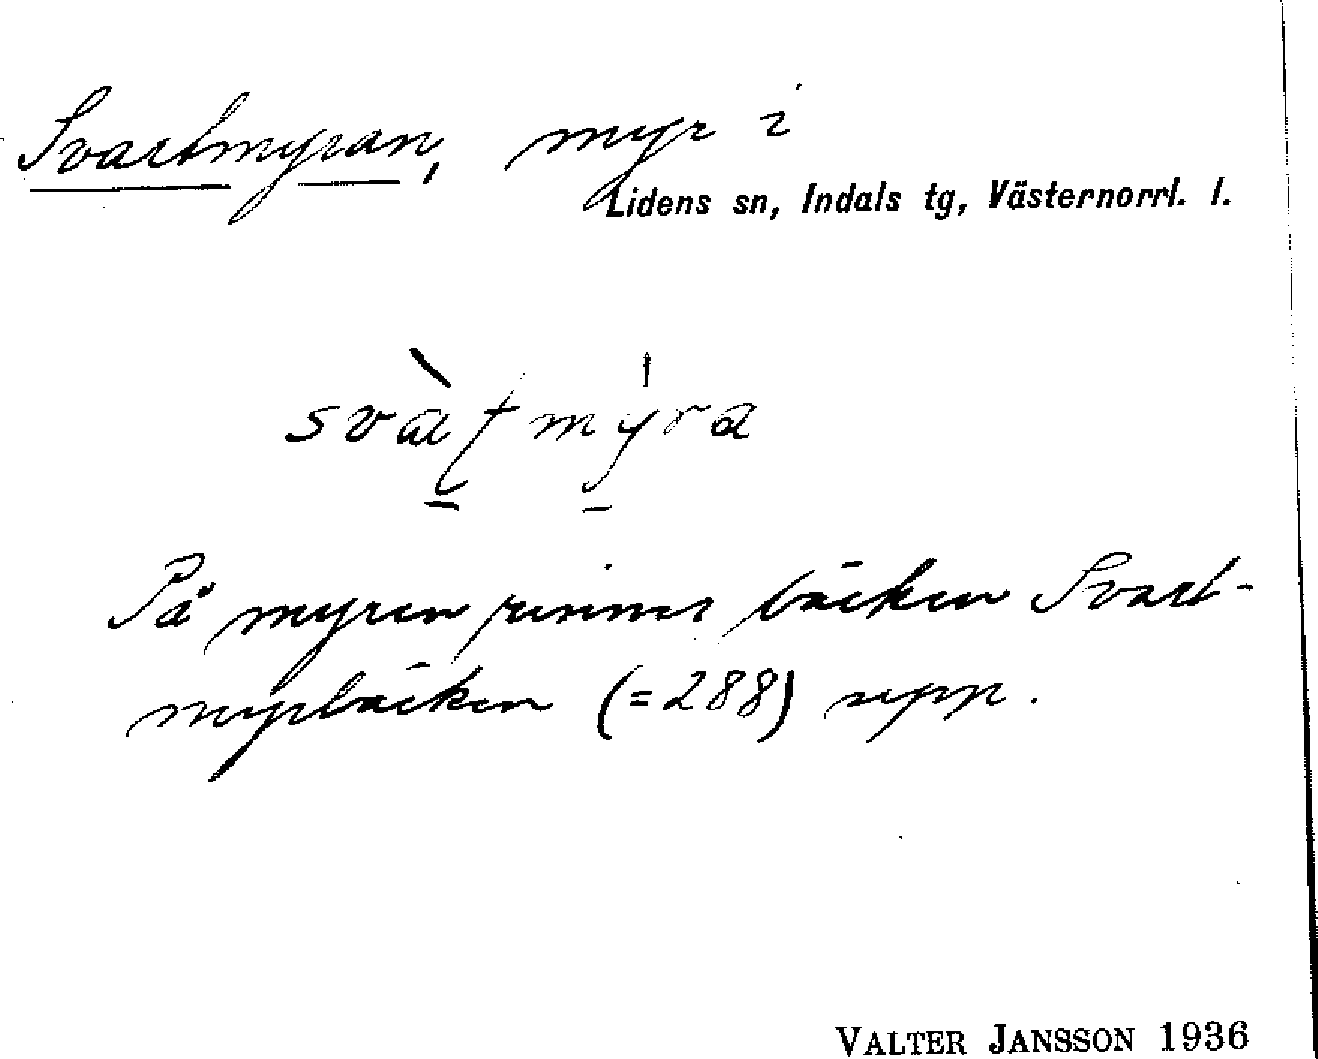 Svartmyran, myr i
Lidens sn, Indals tg, Västernorrl. l.
På myren rinner bäcken Svart-
myrbäcken (=288) upp.
VALTER JANSSON 1936